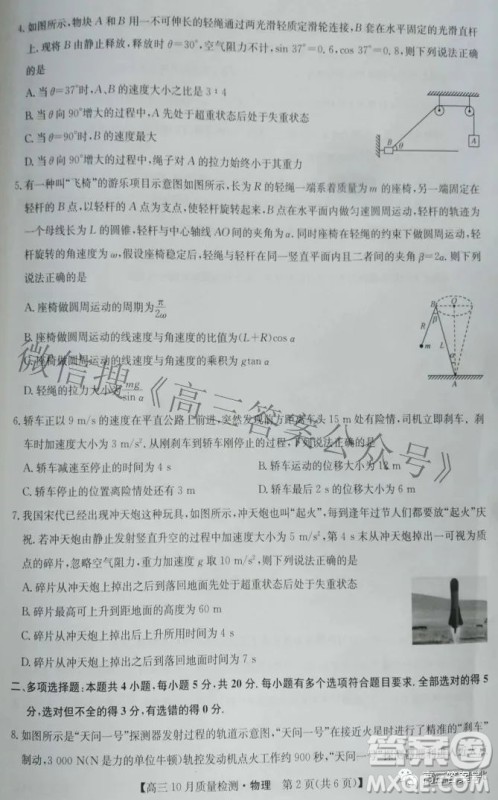 4. 如图所示，物块 A 和 B 用一不可伸长的轻绳通过两光滑轻质定滑轮连接，B 套在水平固定的光滑直杆
上. 现将 B 由静止释放，释放时 θ=30°，空气阻力不计，sin 37°=0.6，cos 37°=0.8，则下列说法正确
的是
A. 当 θ=37°时，A、B 的速度大小之比是 3∶4
B. 当 θ 向 90°增大的过程中，A 先处于超重状态后处于失重状态
C. 当 θ=90°时，B 的速度最大
D. 当 θ 向 90°增大的过程中，绳子对 A 的拉力始终小于其重力
B
θ
A
5. 有一种叫“飞椅”的游乐项目示意图如图所示，长为 R 的轻绳一端系着质量为 m 的座椅，另一端固定在
轻杆的 B 点，以轻杆的 A 点为支点，使轻杆旋转起来，B 点在水平面内做匀速圆周运动，轻杆的轨迹为
一个母线长为 L 的圆锥，轻杆与中心轴线 AO 间的夹角为 α. 同时座椅在轻绳的约束下做圆周运动，轻
杆旋转的角速度为 ω，假设座椅稳定后，轻绳与轻杆在同一竖直平面内且二者间的夹角 β=2α. 则下列
说法正确的是
A. 座椅做圆周运动的周期为 π/2ω
B. 座椅做圆周运动的线速度与角速度的比值为(L+R)cos α
C. 座椅做圆周运动的线速度与角速度的乘积为 gtan α
D. 轻绳的拉力大小为 mg/sin α
B
O
R
β
L
m
α
A
6. 轿车正以 9 m/s 的速度在平直公路上前进，突然发现前方距离车头 15 m 处有险情，司机立即刹车. 刹
车时加速度大小为 3 m/s². 从刚刹车到轿车停止的过程中，下列说法正确的是
A. 轿车减速至停止的时间为 4 s
B. 轿车运动的位移大小为 12 m
C. 轿车停止的位置离险情处还有 3 m
D. 轿车刹车第 2 s 内的位移大小为 6 m
7. 我国宋代已经出现冲天炮这种玩具，如图所示，也叫“起火”，每到逢年过节人们都要放“起火”以示庆
祝. 若冲天炮由静止发射竖直升空的过程中加速度大小为 5 m/s²，第 4 s 末从冲天炮上掉出一可视为质
点的碎片，忽略空气阻力，重力加速度 g 取 10 m/s²，则下列说法正确的是
A. 碎片从冲天炮上掉出之后到落回地面先处于超重后处于失重状态
B. 碎片最高可上升到距地面的高度为 60 m
C. 碎片从冲天炮上掉出后上升所用时间为 4 s
D. 碎片从冲天炮上掉出之后到落回地面所用时间为 7 s
二、多项选择题：本题共 4 小题，每小题 5 分，共 20 分. 每小题有多个选项符合题目要求. 全部选对的得 5
分，选对但不全的得 3 分，有选错的得 0 分.
8. 如图所示是“天问一号”探测器发射过程的轨道示意图，“天问一号”在接近火星时进行了关键的“刹车”
制动，3 000 N(N 是力的单位牛顿)轨控发动机点火工作约 900
【高三 10 月质量检测·物理 第 2 页(共 6 页)】
微信搜《高三答案公众号》
答案圈
MXQE.COM